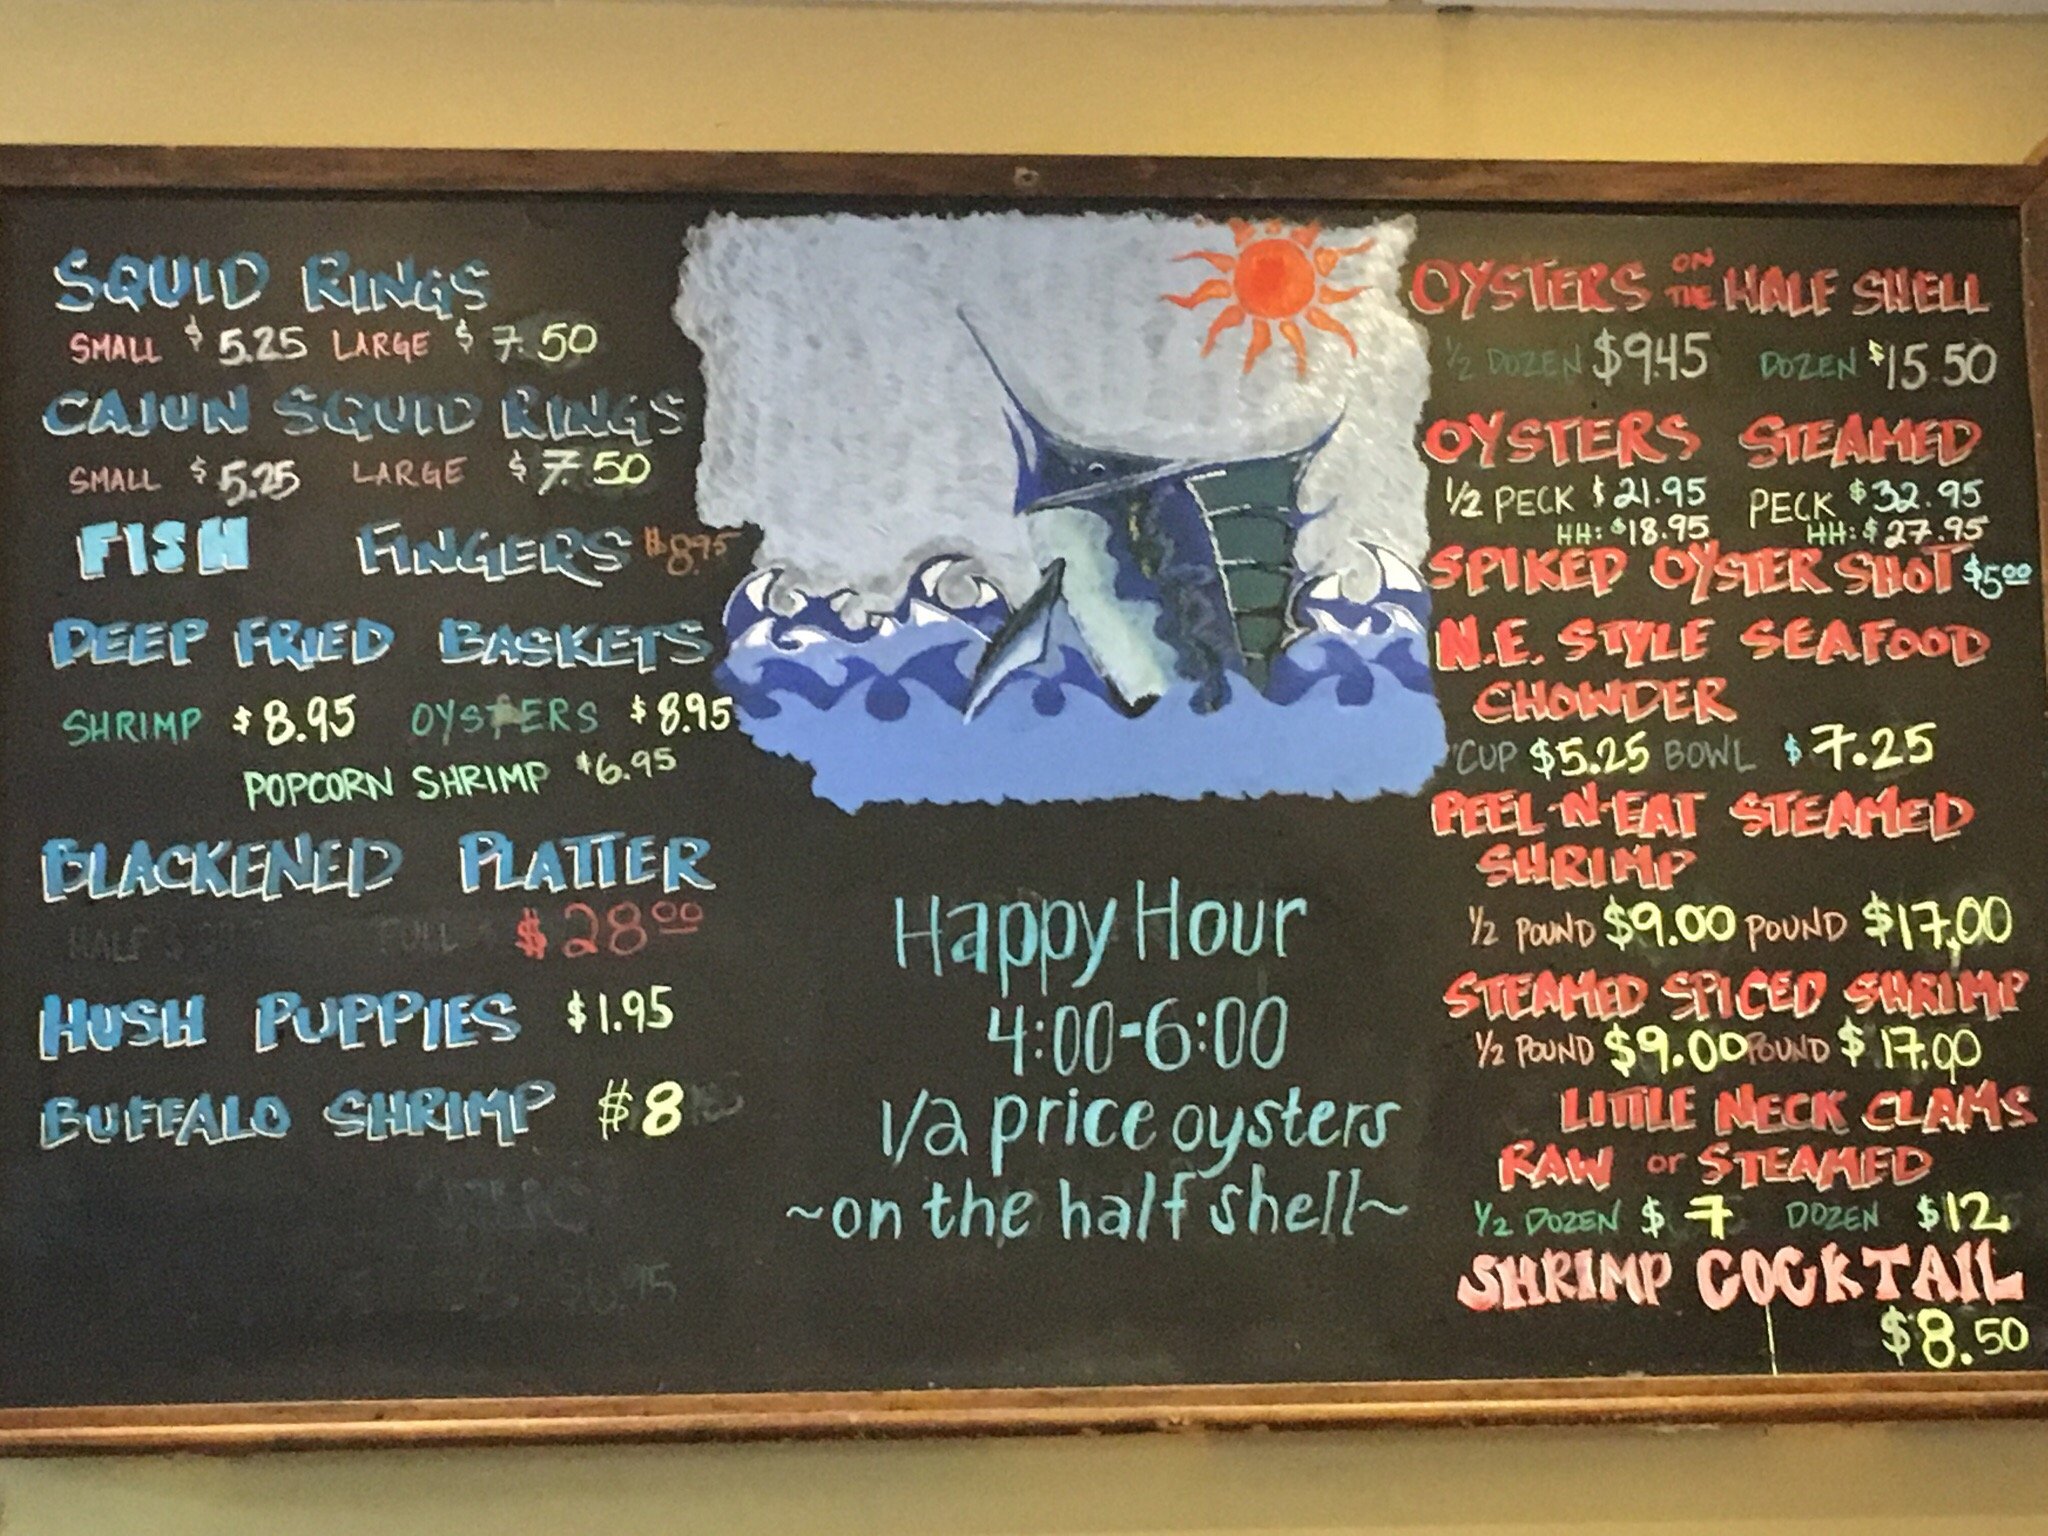 SQUID RINGS
SMALL $5.25 LARGE $7.50
CAJUN SQUID RINGS
SMALL $5.25 LARGE $7.50
FISH FINGERS $8.95
DEEP FRIED BASKETS
SHRIMP $8.95 OYSTERS $8.95
POPCORN SHRIMP $6.95
BLACKENED PLATTER
HALF $ FULL $28.00
HUSH PUPPIES $1.95
BUFFALO SHRIMP $8
Happy Hour
4:00-6:00
1/2 price oysters
~on the half shell~
OYSTERS ON THE HALF SHELL
1/2 DOZEN $9.45 DOZEN $15.50
OYSTERS STEAMED
1/2 PECK $21.95 PECK $32.95
HH: $18.95 HH: $27.95
SPIKED OYSTER SHOT $5.00
N.E. STYLE SEAFOOD
CHOWDER
CUP $5.25 BOWL $7.25
PEEL-N-EAT STEAMED
SHRIMP
1/2 POUND $9.00 POUND $17.00
STEAMED SPICED SHRIMP
1/2 POUND $9.00 POUND $17.00
LITTLE NECK CLAMS
RAW or STEAMED
1/2 DOZEN $7 DOZEN $12
SHRIMP COCKTAIL
$8.50